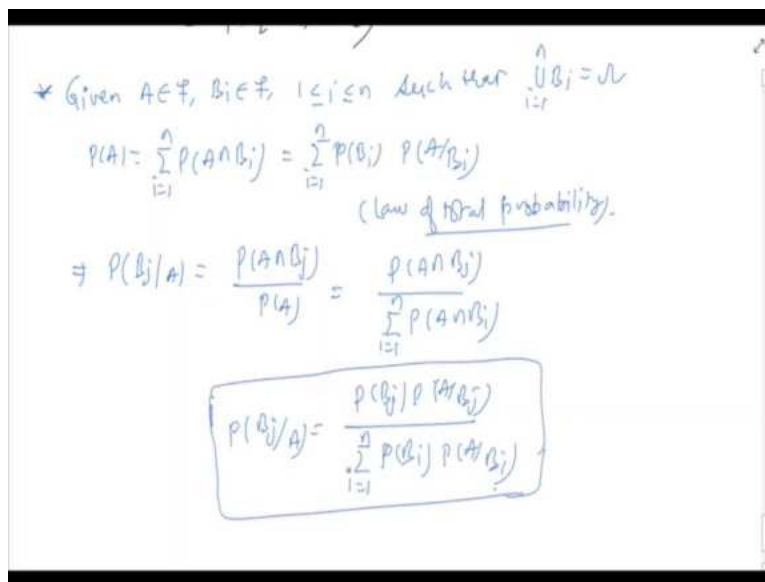 * Given A∈Ƒ, Bi∈Ƒ, 1≤i≤n such that ⋃_{i=1}^{n} Bi = Ω
P(A) = ∑_{i=1}^{n} P(A∩Bi) = ∑_{i=1}^{n} P(Bi) P(A/Bi)
(law of total probability).
⇒ P(Bj/A) = P(A∩Bj)/P(A) = P(A∩Bj)/∑_{i=1}^{n} P(A∩Bi)
P(Bj/A) = P(Bj) P(A/Bj)/∑_{i=1}^{n} P(Bi) P(A/Bi)